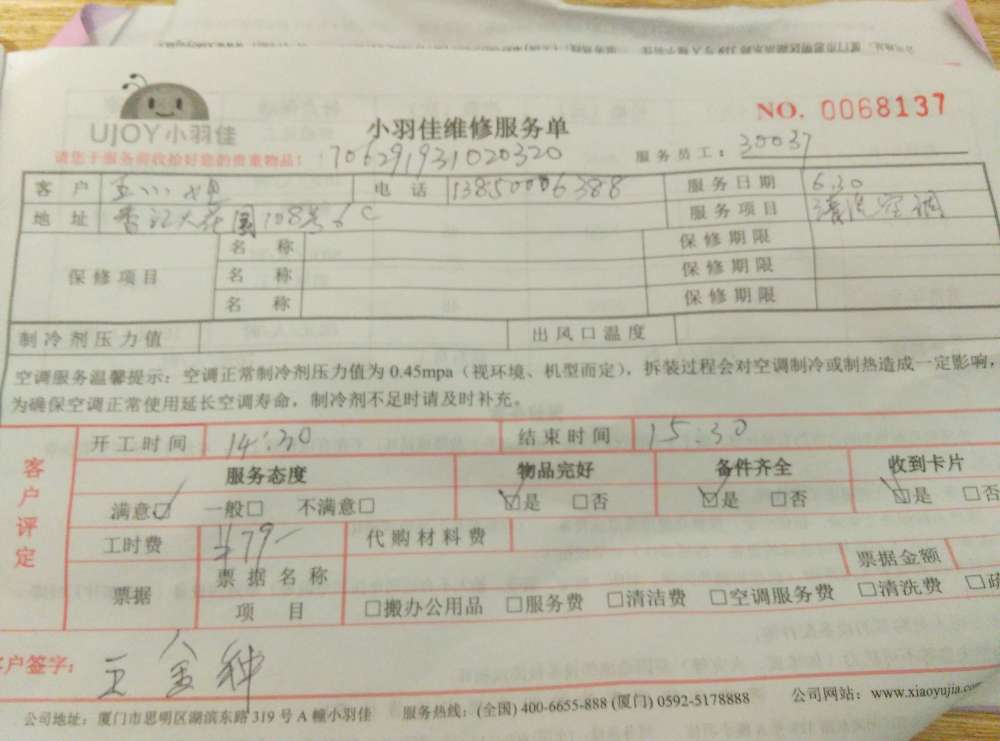 UJOY小羽佳
小羽佳维修服务单
NO. 0068137
请您于服务前收拾好您的贵重物品!
706291931020320
服务员工: 30037
客 户 电 话 13850006388 服务日期 6.30
地 址 大花园108号6C 服务项目 清洗空调
保修项目
名 称 保修期限
名 称 保修期限
名 称 保修期限
制冷剂压力值 出风口温度
空调服务温馨提示:空调正常制冷剂压力值为 0.45mpa(视环境、机型而定),拆装过程会对空调制冷或制热造成一定影响,
为确保空调正常使用延长空调寿命,制冷剂不足时请及时补充。
客户评定
开工时间 14:30 结束时间 15:30
服务态度 物品完好 备件齐全 收到卡片
满意☑ 一般□ 不满意□ ☑是 □否 ☑是 □否 ☑是 □否
工时费 ¥79- 代购材料费
票据 票据名称 票据金额
项 目 □搬办公用品 □服务费 □清洁费 □空调服务费 □清洗费
客户签字: 王金种
公司地址:厦门市思明区湖滨东路 319 号 A 幢小羽佳 服务热线:(全国) 400-6655-888 (厦门) 0592-5178888 公司网站:www.xiaoyujia.com